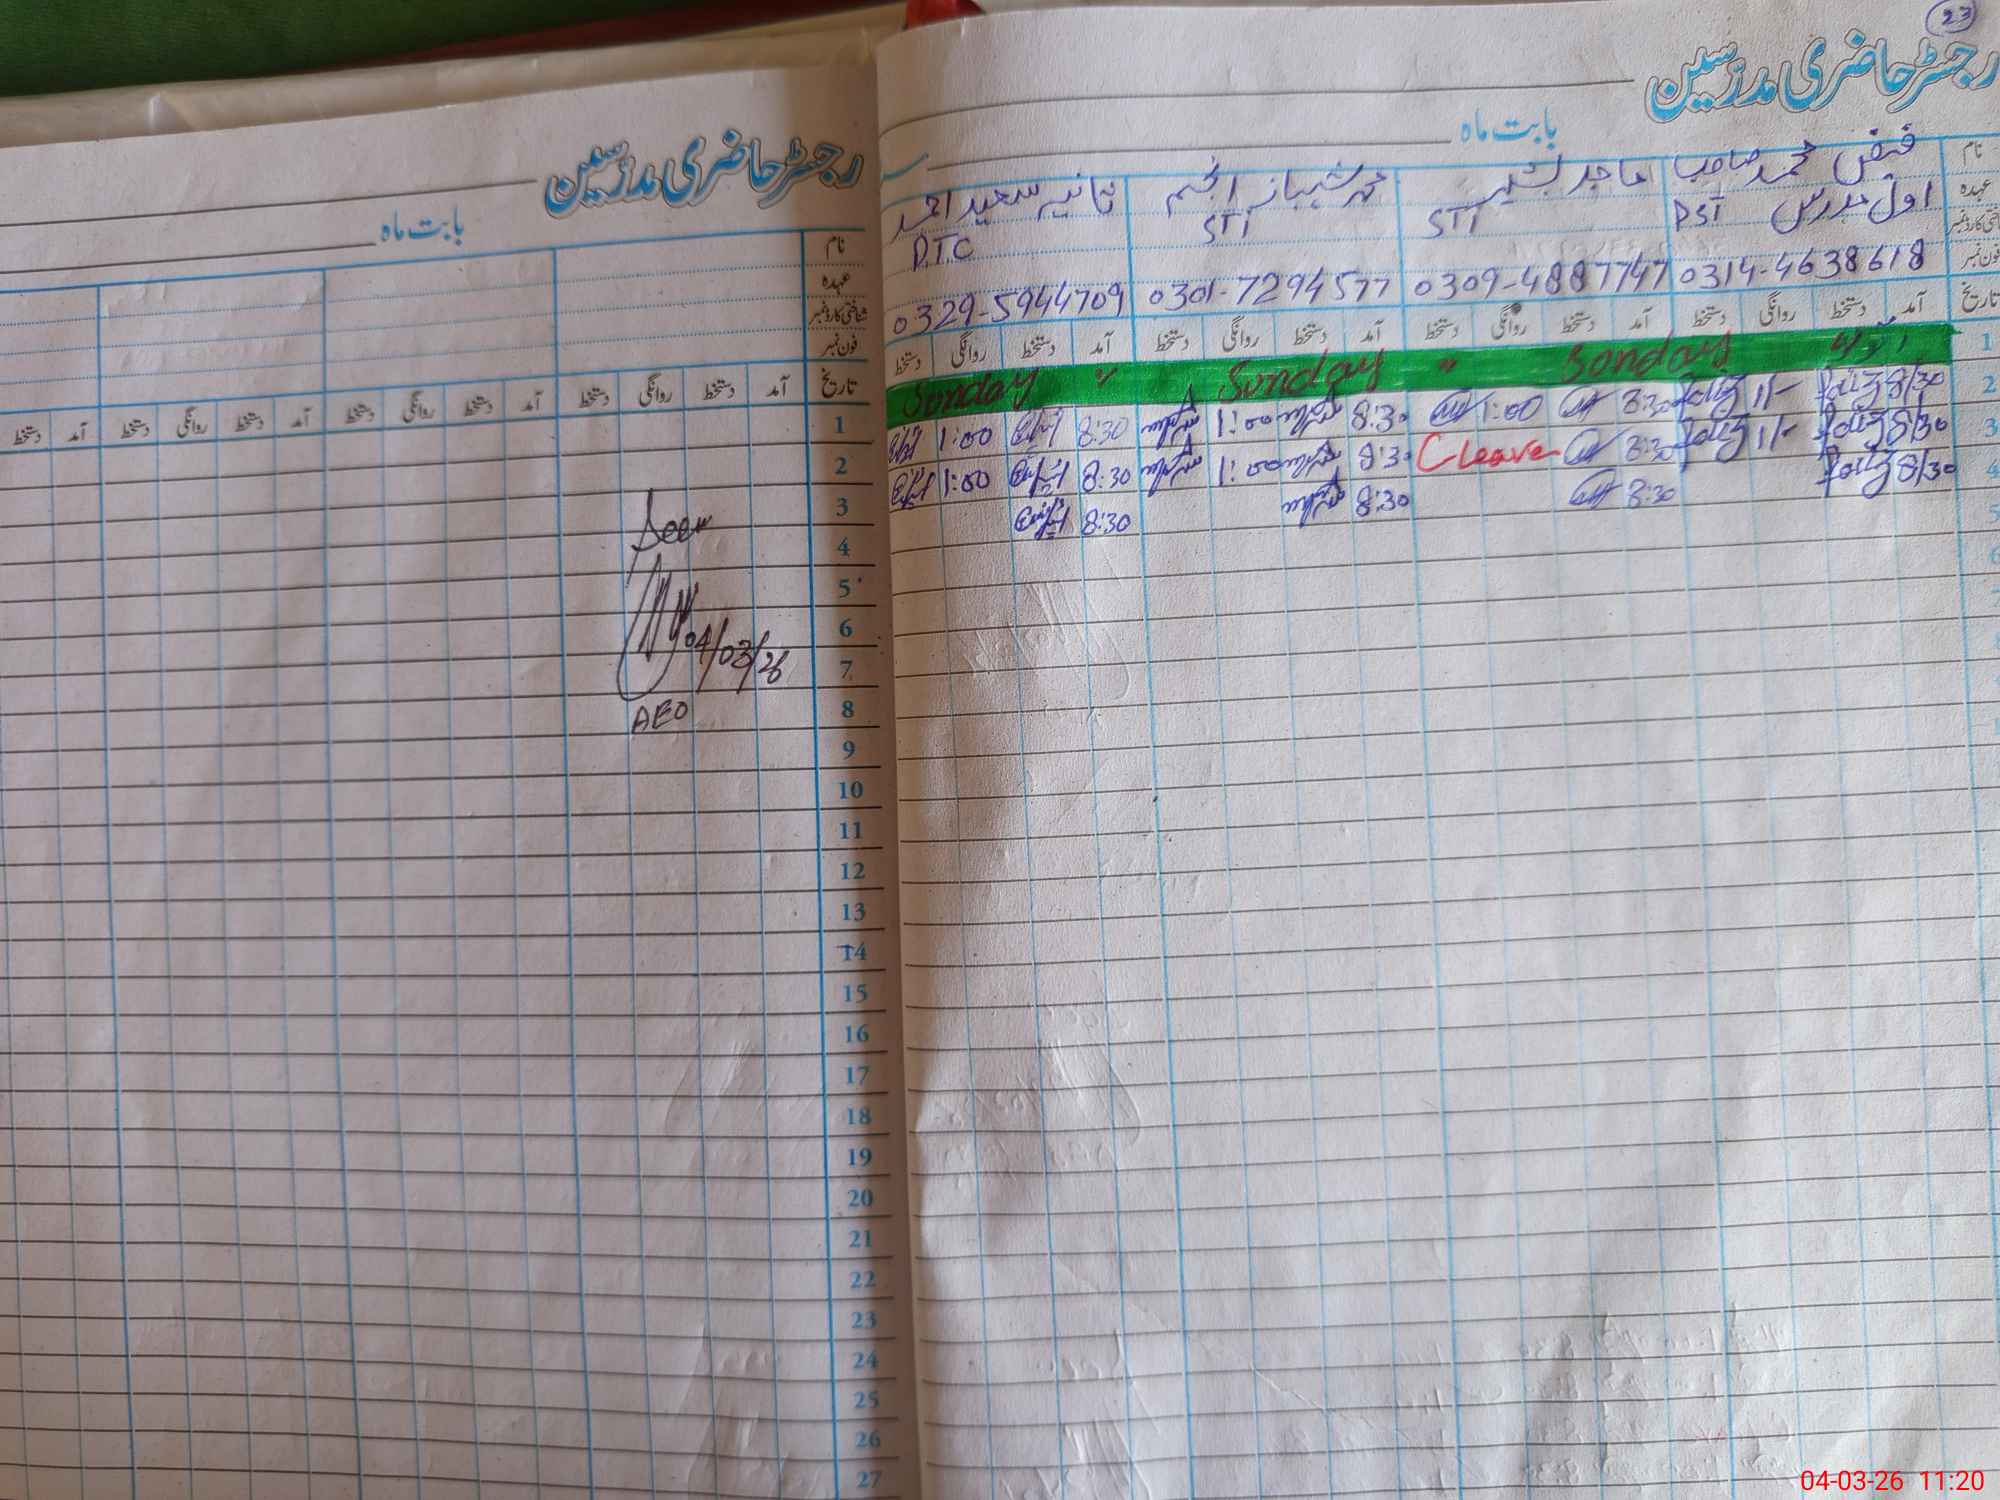 رجسٹر حاضری مدرسین
بابت ماہ
نام
عہدہ
شناختی کارڈ نمبر
فون نمبر
تاریخ آمد دستخط روانگی دستخط آمد دستخط روانگی دستخط آمد دستخط روانگی دستخط آمد دستخط
1
2
3
4
5
6
7
8
9
10
11
12
13
14
15
16
17
18
19
20
21
22
23
24
25
26
27
Seen
04/03/26
AEO
23
رجسٹر حاضری مدرسین
بابت ماہ
نام فیض محمد صاحب ماجد بشیر محمد شہباز انجم ثانیہ سعید احمد
عہدہ اول مدرس PST STI STI P.T.C
فون نمبر 0314-4638618 0309-4887747 0301-7294577 0329-5944709
تاریخ آمد دستخط روانگی دستخط آمد دستخط روانگی دستخط آمد دستخط روانگی دستخط آمد دستخط روانگی دستخط
1 Sunday " Sunday " Sunday
2 8/30 Faiz 1/- Faiz 8:30 1:00 8:30 1:00 8:30 1:00
3 8/30 Faiz 1/- Faiz 8:30 C leave 8:30 1:00 8:30 1:00
4 8/30 Faiz 8:30 8:30 8:30
5
6
04-03-26 11:20